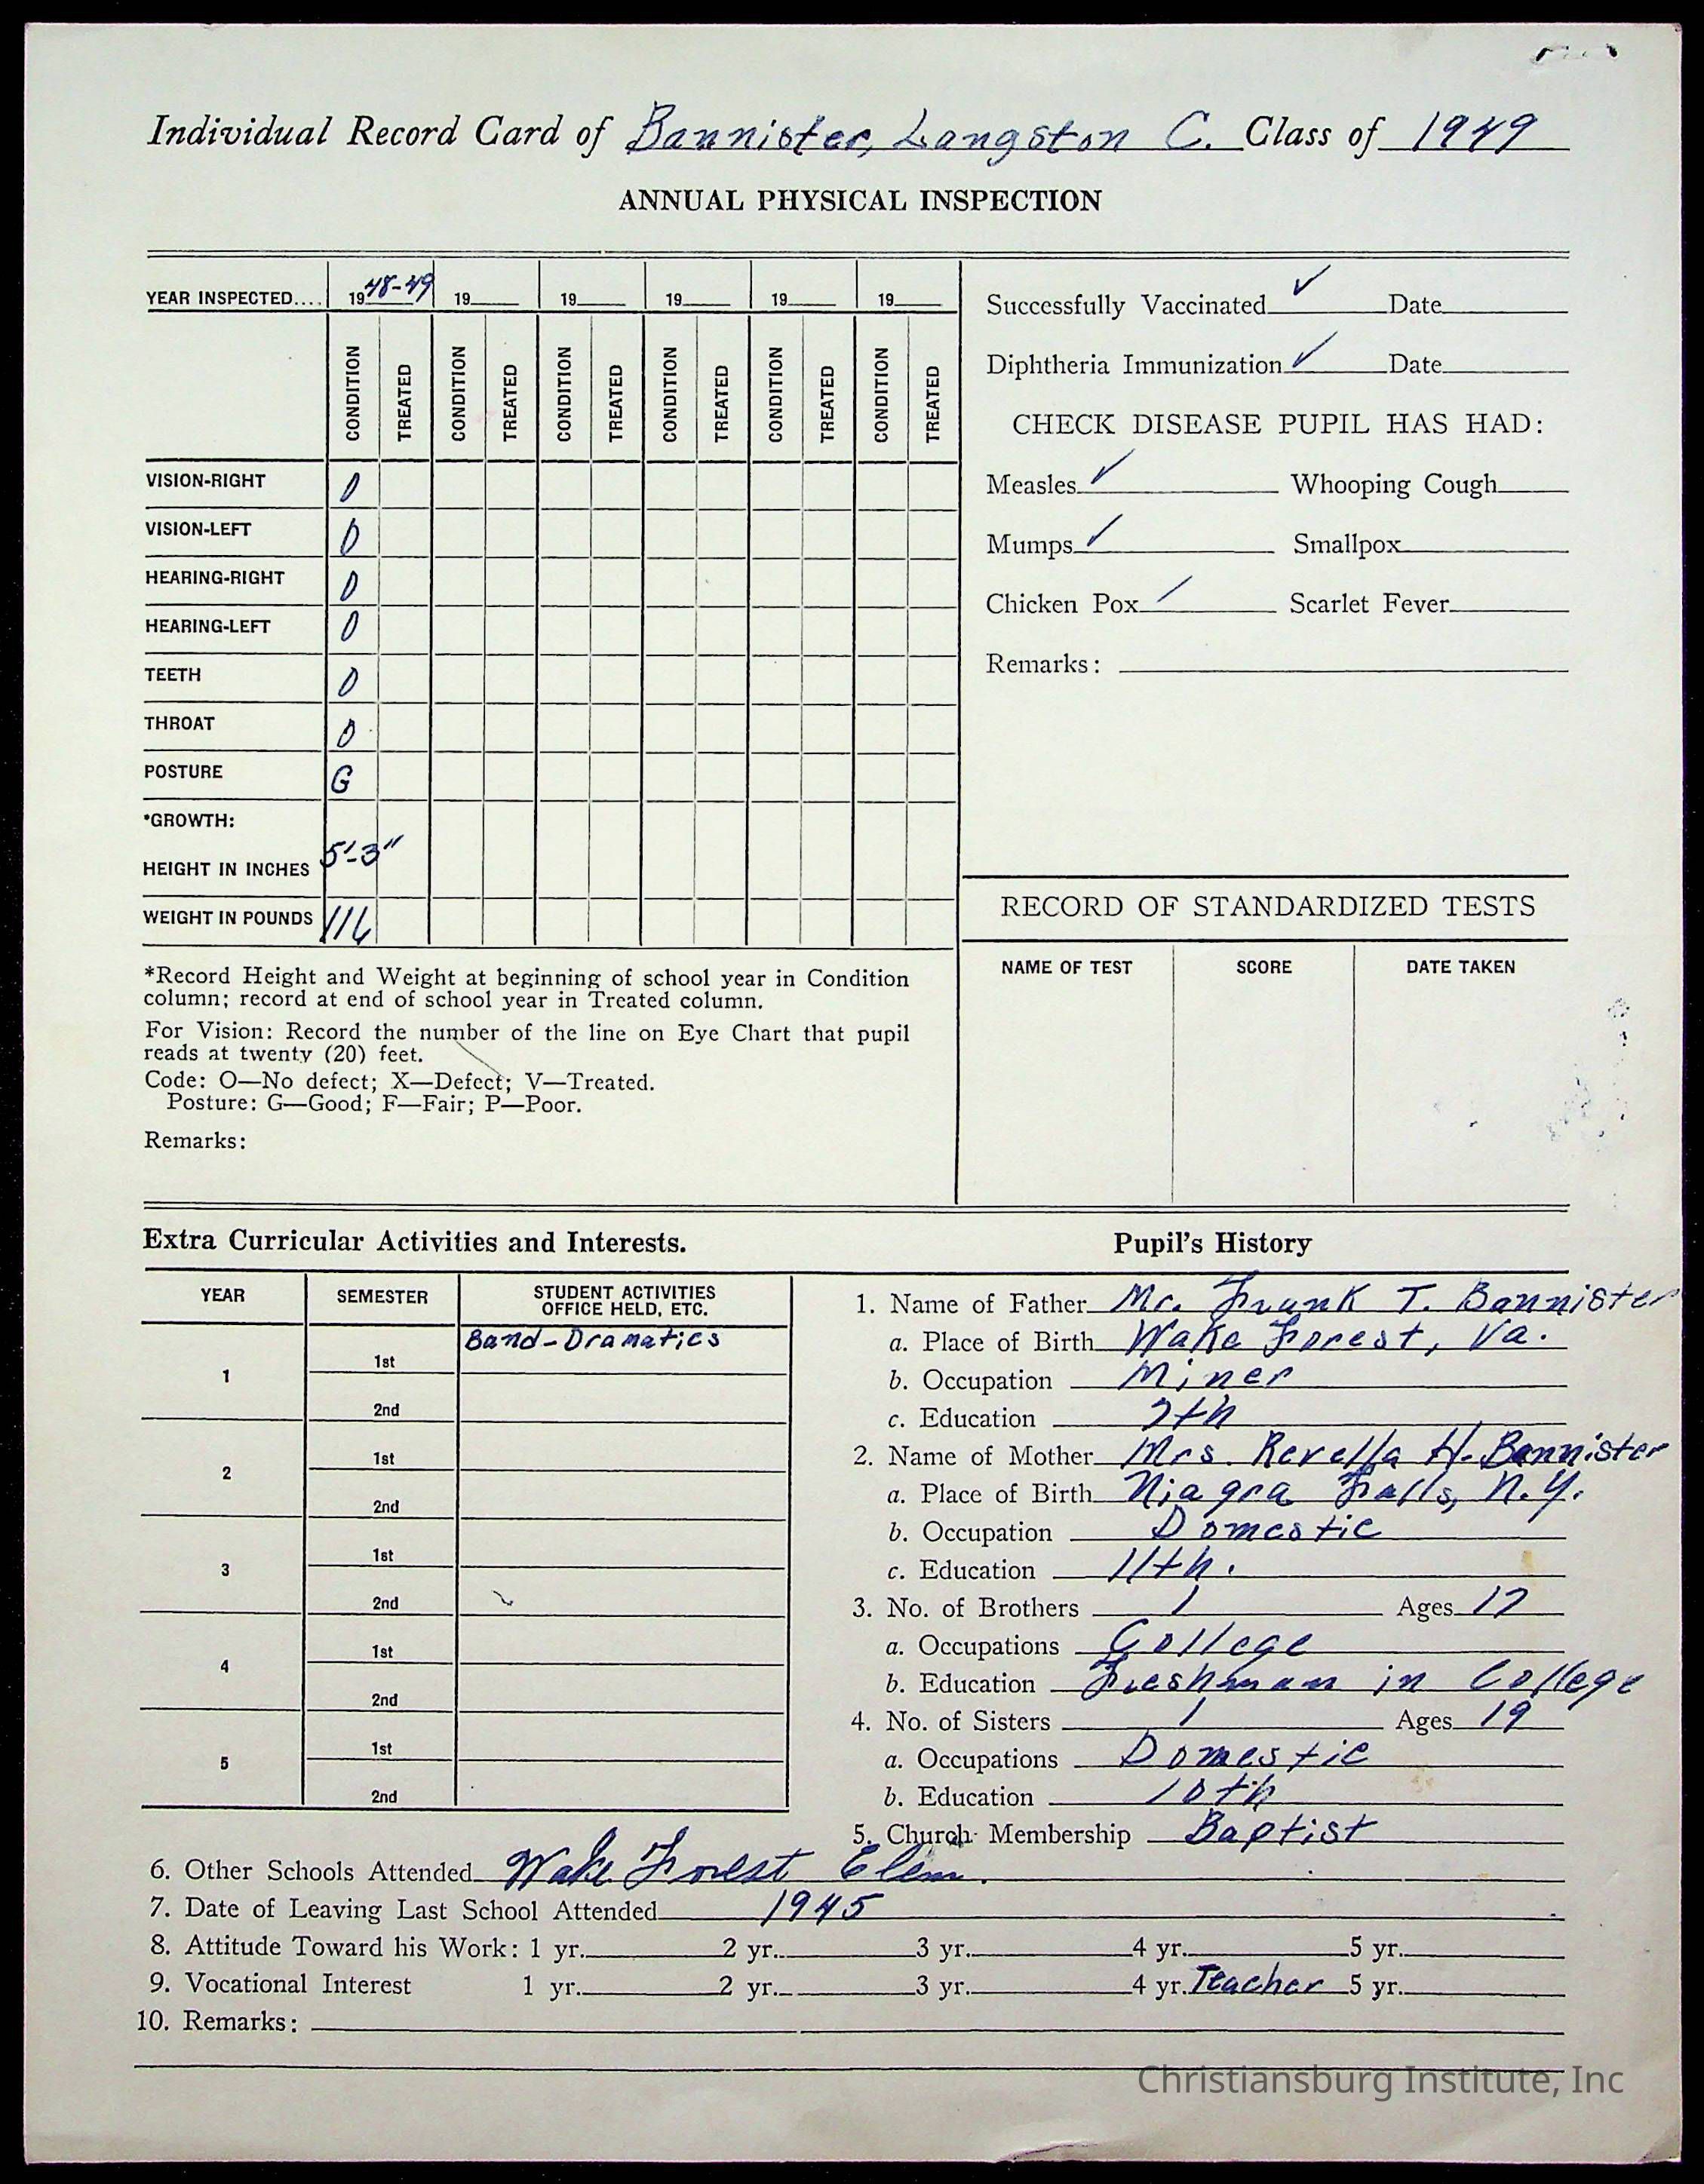 Individual Record Card of Bannister, Langston C. Class of 1949
ANNUAL PHYSICAL INSPECTION
YEAR INSPECTED.... 1948-49 19 19 19 19 19
CONDITION TREATED CONDITION TREATED CONDITION TREATED CONDITION TREATED CONDITION TREATED CONDITION TREATED
VISION-RIGHT O
VISION-LEFT O
HEARING-RIGHT O
HEARING-LEFT O
TEETH O
THROAT O
POSTURE G
*GROWTH:
HEIGHT IN INCHES 5'-3"
WEIGHT IN POUNDS 116
*Record Height and Weight at beginning of school year in Condition
column; record at end of school year in Treated column.
For Vision: Record the number of the line on Eye Chart that pupil
reads at twenty (20) feet.
Code: O—No defect; X—Defect; V—Treated.
Posture: G—Good; F—Fair; P—Poor.
Remarks:
Successfully Vaccinated ✓ Date
Diphtheria Immunization ✓ Date
CHECK DISEASE PUPIL HAS HAD:
Measles ✓ Whooping Cough
Mumps ✓ Smallpox
Chicken Pox ✓ Scarlet Fever
Remarks:
RECORD OF STANDARDIZED TESTS
NAME OF TEST SCORE DATE TAKEN
Extra Curricular Activities and Interests.
YEAR SEMESTER STUDENT ACTIVITIES
OFFICE HELD, ETC.
Band-Dramatics
1st
1
2nd
1st
2
2nd
1st
3
2nd
1st
4
2nd
1st
5
2nd
Pupil's History
1. Name of Father Mr. Frank T. Bannister
a. Place of Birth Wake Forest, Va.
b. Occupation Miner
c. Education 7th
2. Name of Mother Mrs. Revella H. Bannister
a. Place of Birth Niagra Falls, N.Y.
b. Occupation Domestic
c. Education 11th.
3. No. of Brothers 1 Ages 17
a. Occupations College
b. Education Freshman in College
4. No. of Sisters 1 Ages 19
a. Occupations Domestic
b. Education 10th
5. Church Membership Baptist
6. Other Schools Attended Wake Forest Elem.
7. Date of Leaving Last School Attended 1945
8. Attitude Toward his Work: 1 yr. 2 yr. 3 yr. 4 yr. 5 yr.
9. Vocational Interest 1 yr. 2 yr. 3 yr. 4 yr. Teacher 5 yr.
10. Remarks:
Christiansburg Institute, Inc